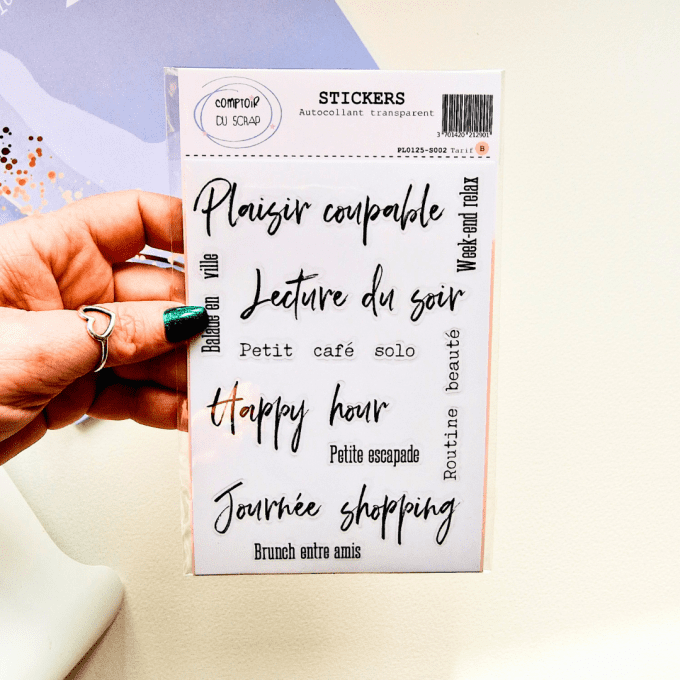 COMPTOIR
DU SCRAP
STICKERS
Autocollant transparent
3 701420 212901
PL0125-S002 Tarif B
Plaisir coupable
Week-end relax
Balade en ville
Lecture du soir
Petit café solo
Routine beauté
Happy hour
Petite escapade
Journée shopping
Brunch entre amis